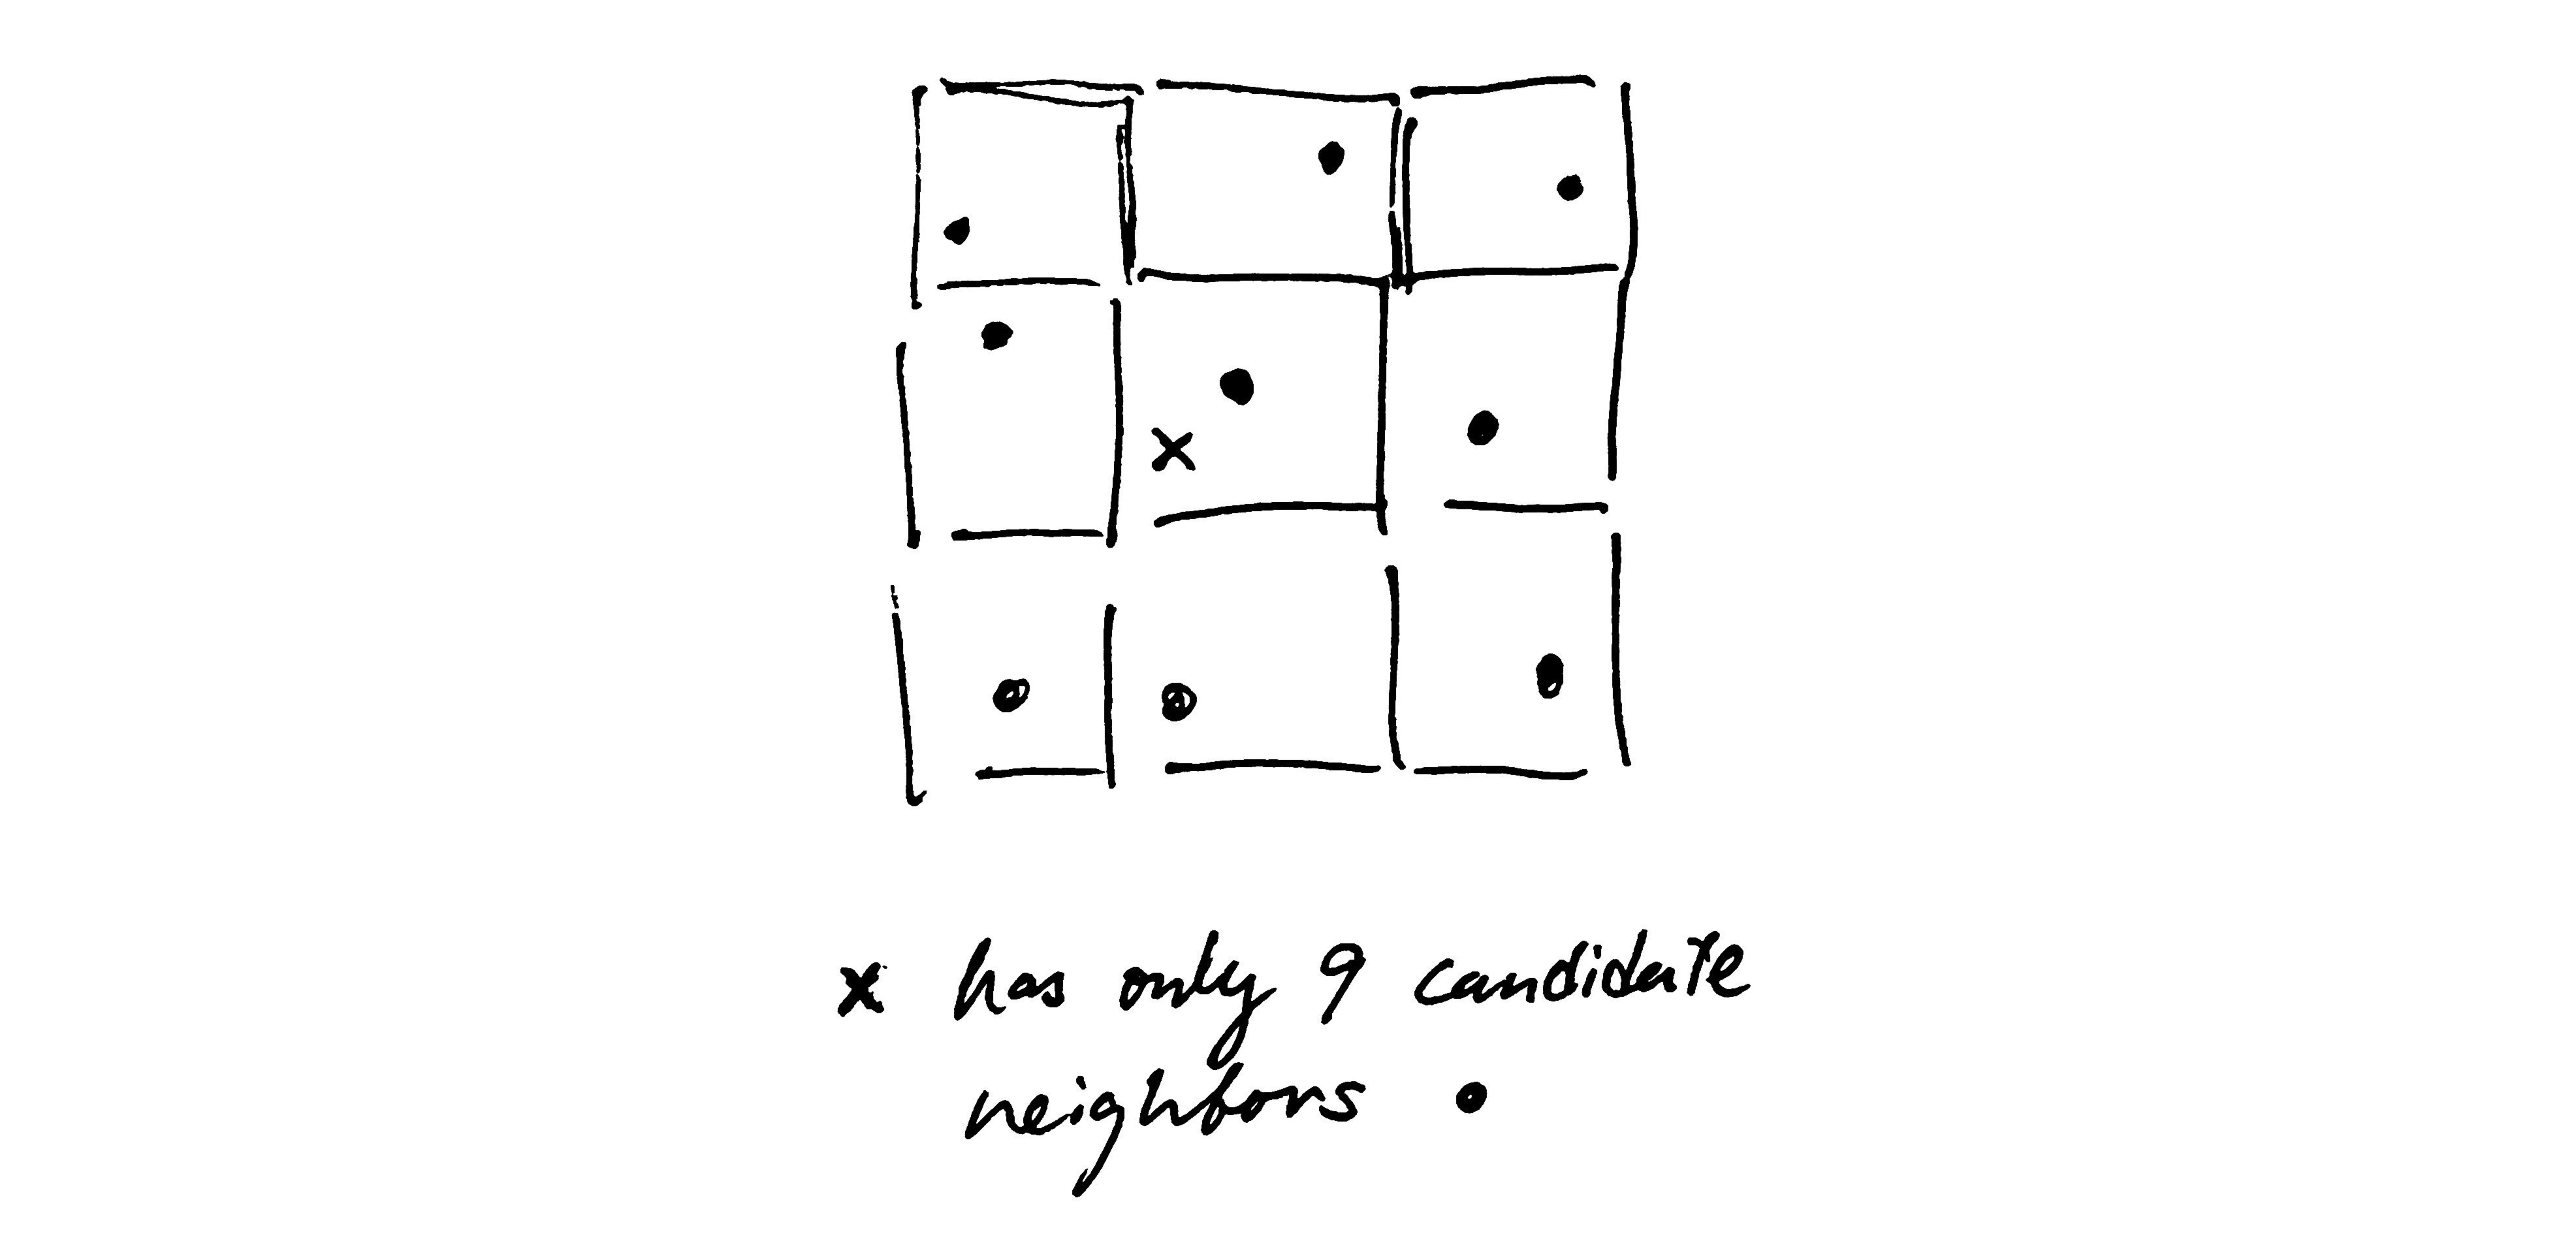 x has only 9 candidate
neighbors •